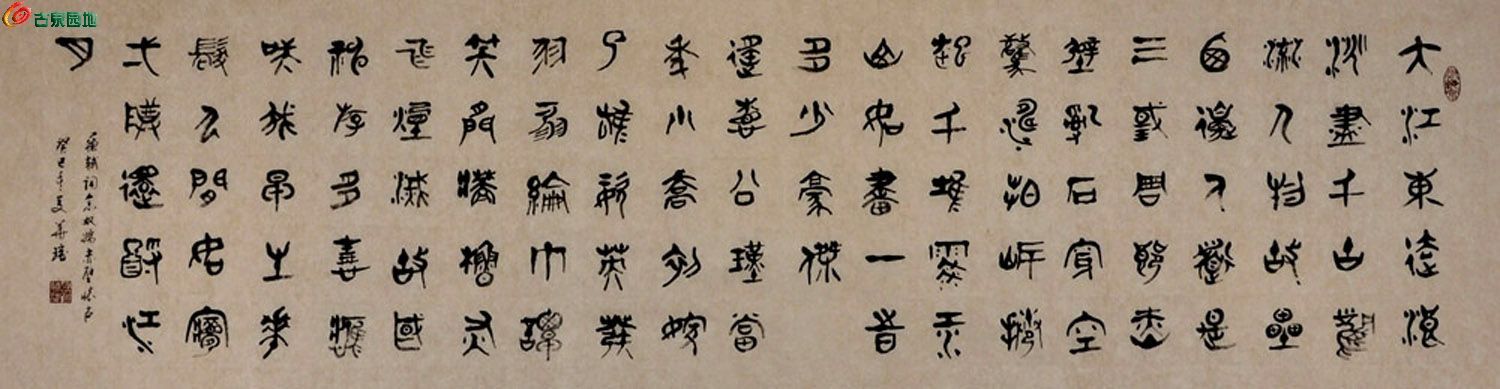 古泉园地
大江東去浪
淘盡千古風
流人物故壘
西邊人道是
三國周郎赤
壁亂石穿空
驚濤拍岸捲
起千堆雪江
山如畫一時
多少豪傑
遙想公瑾當
年小喬初嫁
了雄姿英發
羽扇綸巾談
笑間檣櫓灰
飛煙滅故國
神遊多情應
笑我早生華
髮人間如夢
一尊還酹江
月
蘇軾詞念奴嬌赤壁懷古
癸巳年夏華